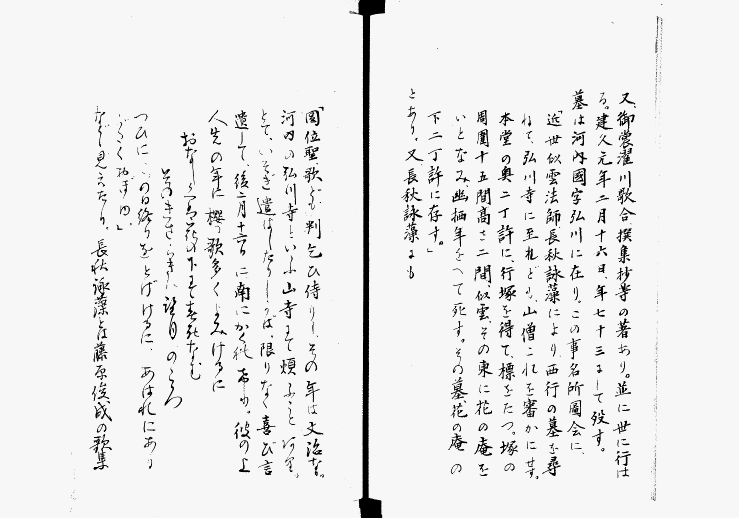 又、御裳濯川歌合撰集抄等の著あり。並に世に行は
る。建久元年二月十六日、年七十三にして歿す。
墓は河内國字弘川に在り。この事名所圖会に、
「近世似雲法師長秋詠藻により西行の墓を尋
ねて、弘川寺に至れども、山僧これを審かにせず。
本堂の奥二丁許に、行塚を得て、標をたつ。塚の
周圍十五間高さ二間、似雲その東に花の庵を
いとなみ、幽栖年をへて死す。その墓、花の庵の
下二丁許に存す。」
とあり。又長秋詠藻にも
「圓位聖歌ども判乞ひ侍りし、その年は文治
河内の弘川寺といふ山寺にて煩ふこと
とて、いそぎ遣はしたりしかば、限りなく喜び言
遣して、後二月十六日に南にかくれ 彼の上
人先の年に櫻の歌多くよみけるに
おなじくは花の下にて春死なむ
そのきさらぎの望月のころ
つひに の日終りをとげけるに、あはれにあり
がたくおぼゆ」
など見えたり。長秋詠藻とは藤原俊成の歌集